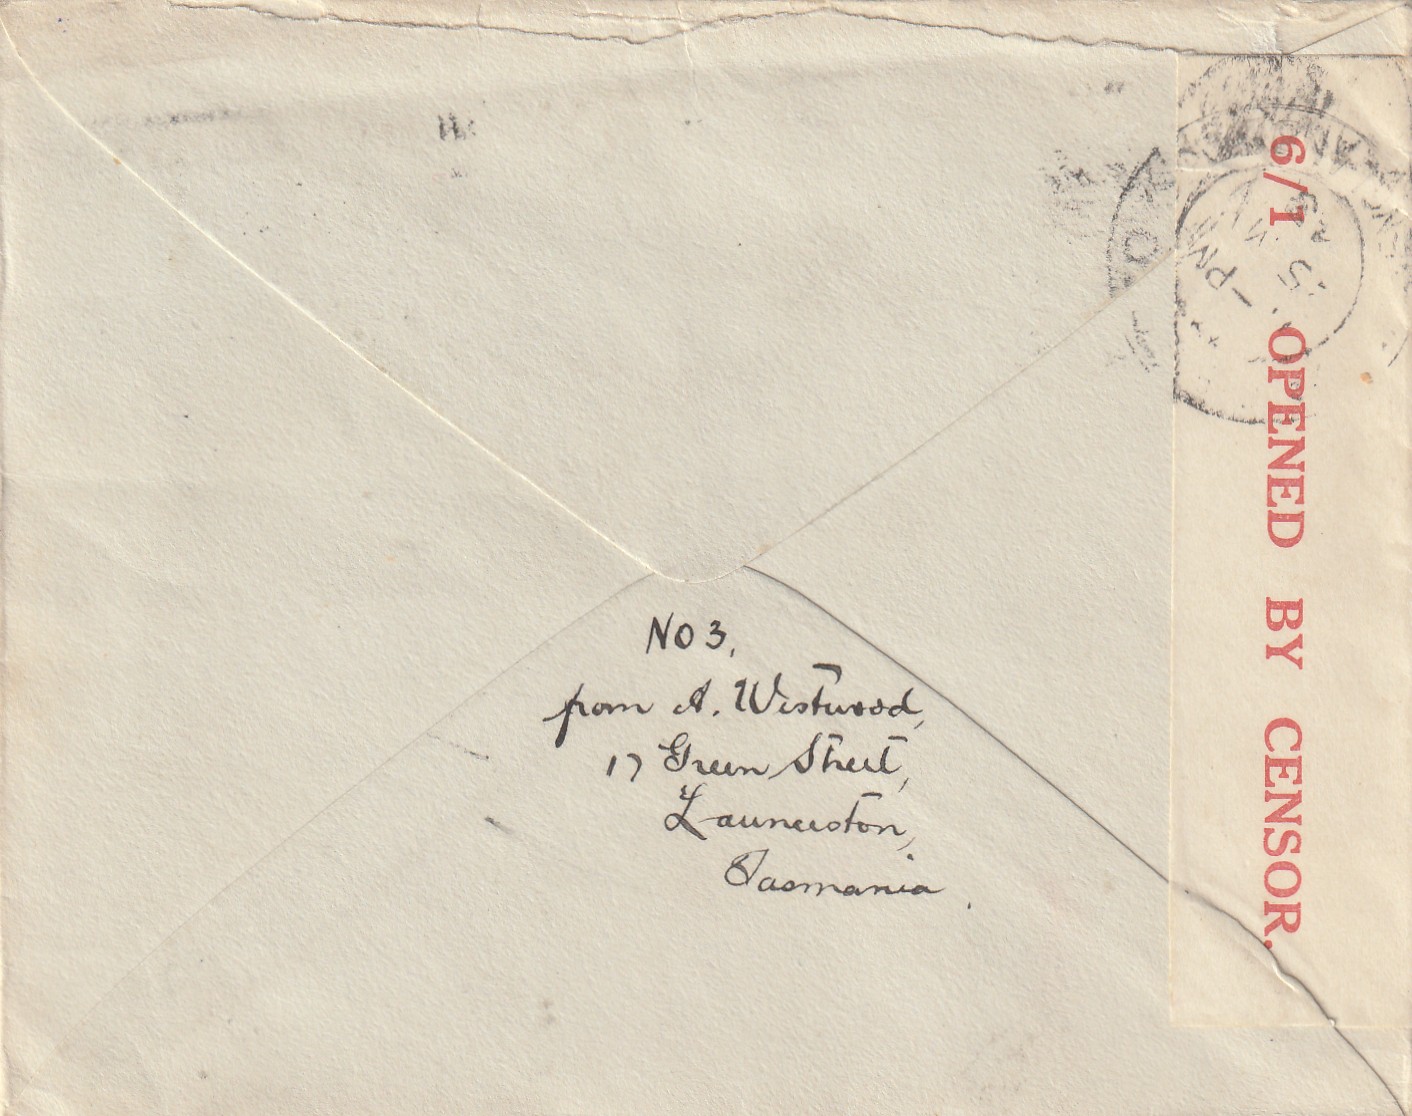 NO 3,
from A. Westwood,
17 Green Street,
Launceston,
Tasmania.
6/1 OPENED BY CENSOR.
PM